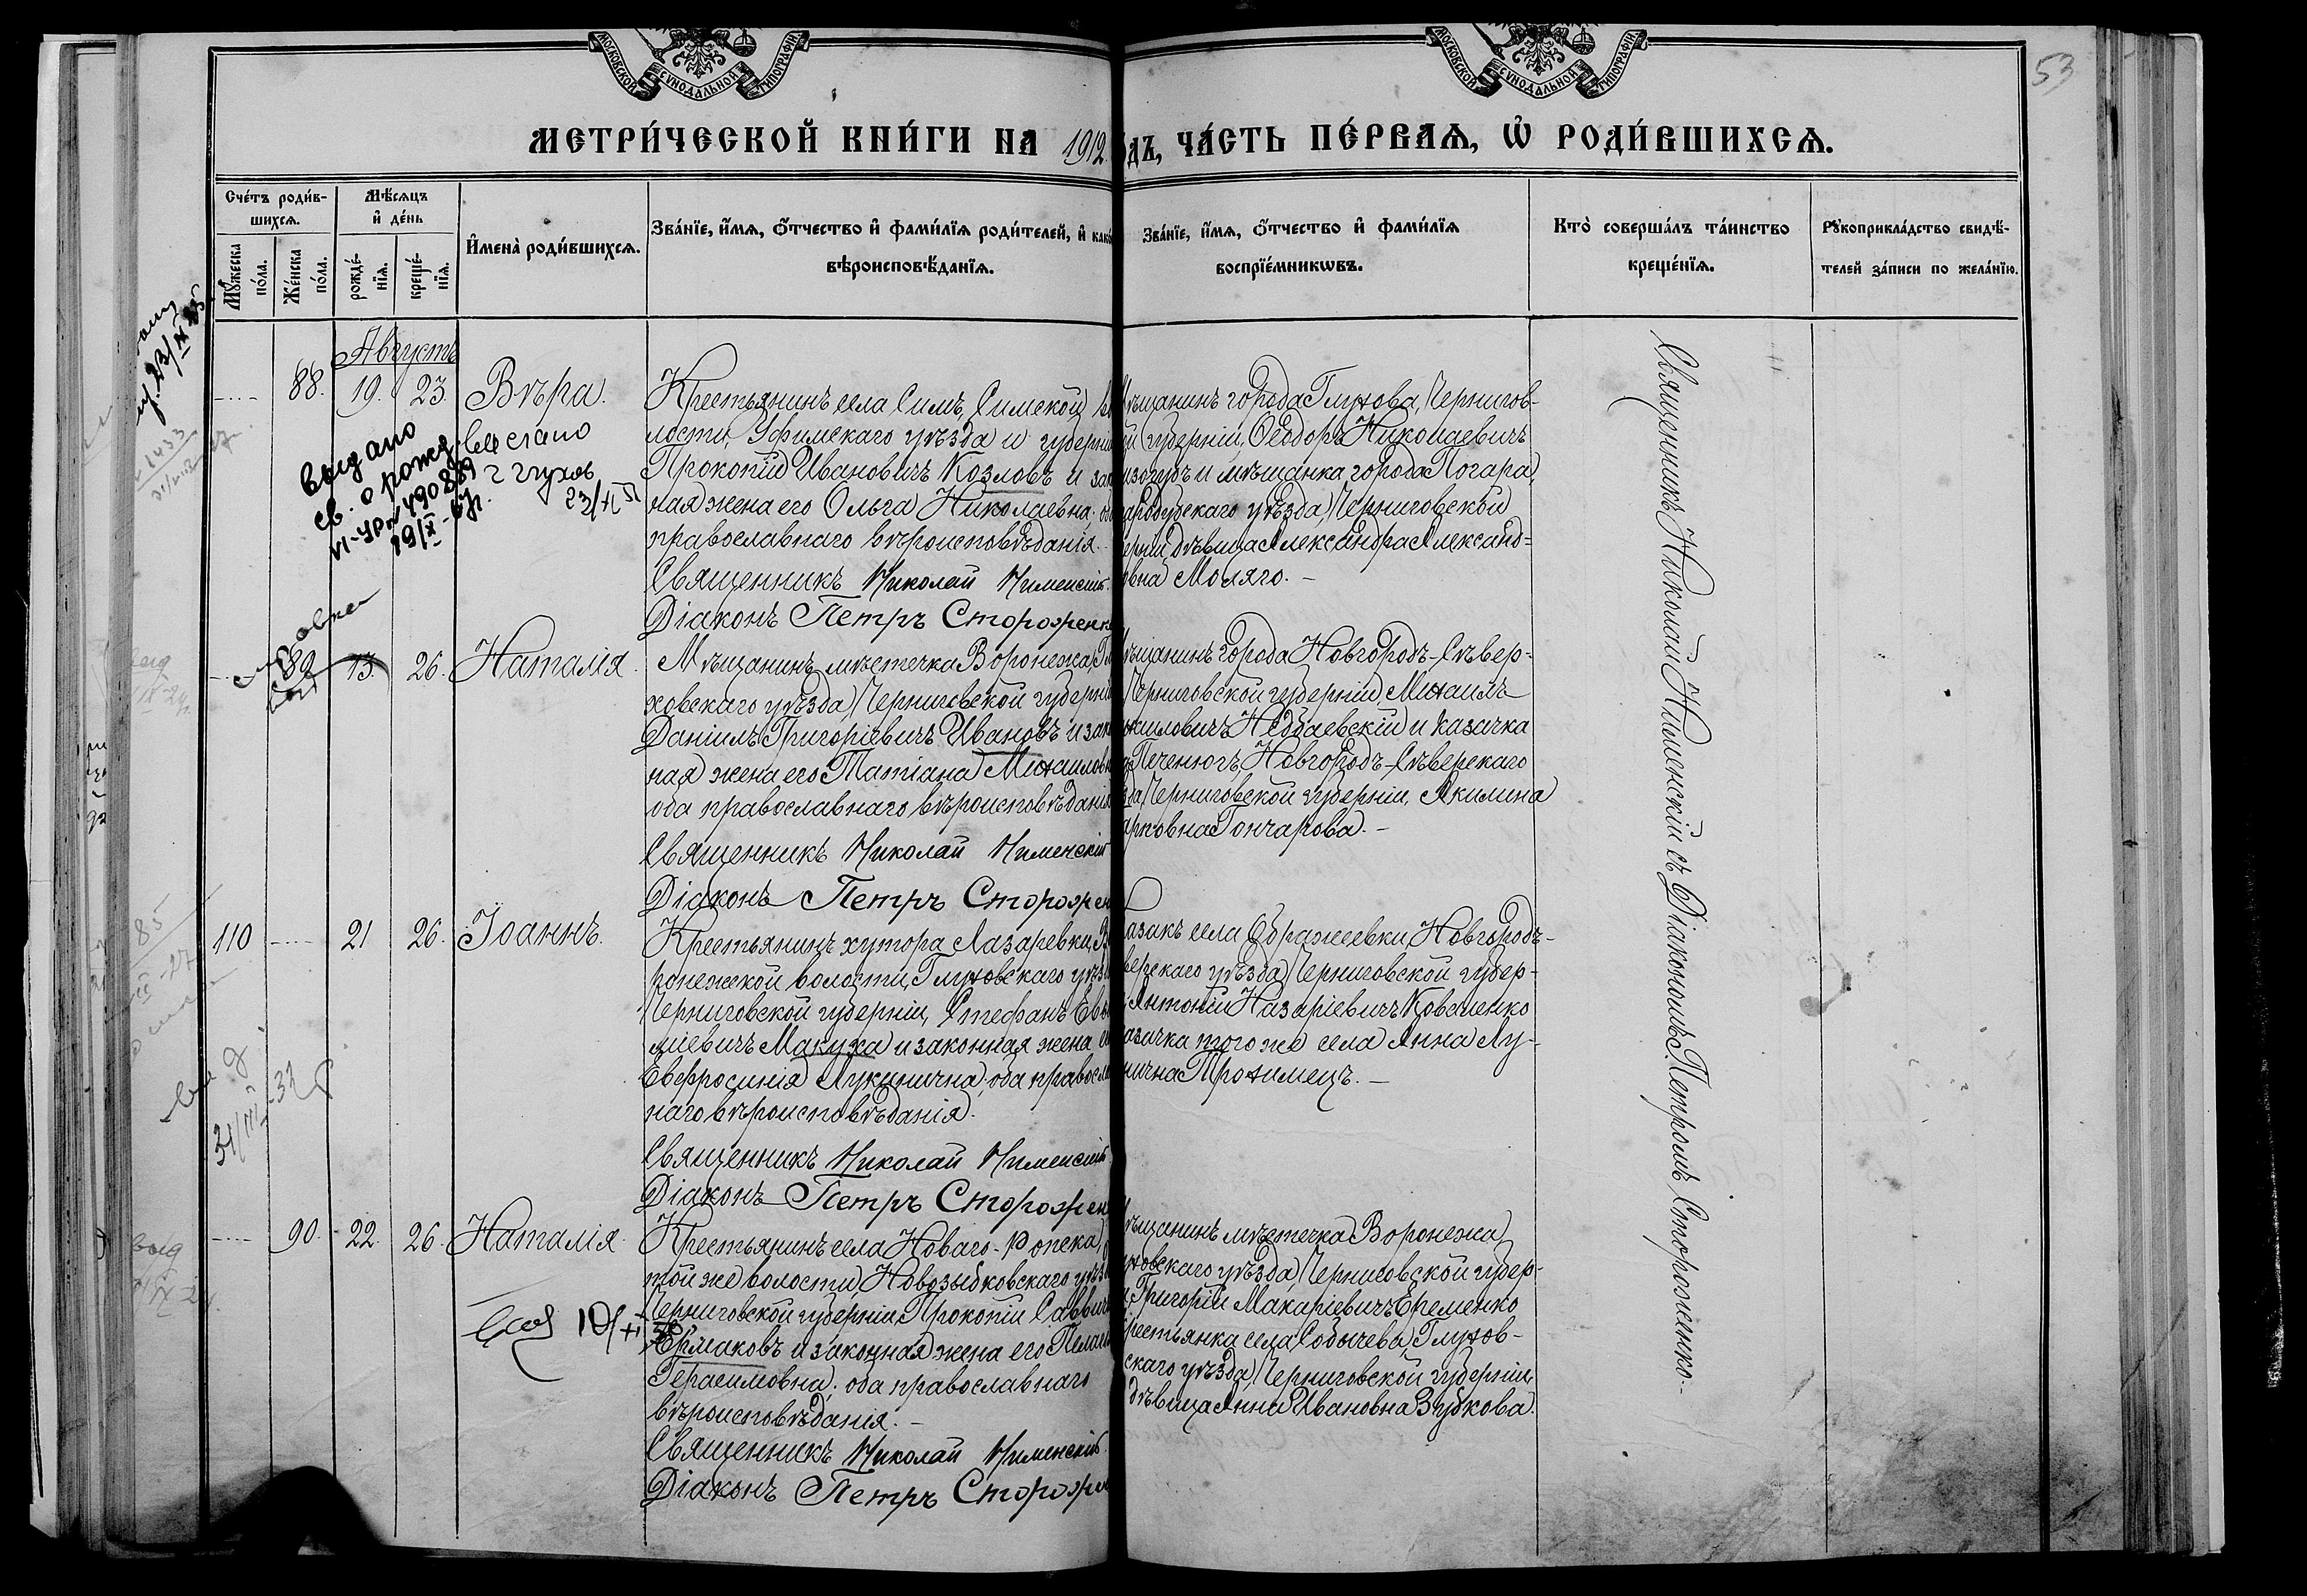 МОСКОВСКОЙ СѴНОДАЛЬНОЙ ТИПОГРАФІИ
МОСКОВСКОЙ СѴНОДАЛЬНОЙ ТИПОГРАФІИ
53
МЕТРИ́ЧЕСКОЙ КНИ́ГИ НА 1912 ДЪ, ЧА́СТЬ ПЕ́РВАѦ, Ѡ҆ РОДИ́ВШИХСѦ.
Сче́тъ роди́в-
шихсѧ.
Мꙋ́жеска
по́ла.
Же́нска
по́ла.
Мѣ́сѧцъ
и҆ де́нь
рожде́-
нїѧ.
креще́-
нїѧ.
И҆мена̀ роди́вшихсѧ.
Зва́нїе, и҆́мѧ, ѻ҆́тчество и҆ фами́лїѧ роди́телей, и҆ како́
вѣроисповѣ́данїѧ.
Зва́нїе, и҆́мѧ, ѻ҆́тчество и҆ фами́лїѧ
воспрїе́мникѡвъ.
Кто̀ соверша́лъ та́инство
креще́нїѧ.
Рꙋкоприкла́дство свидѣ́-
телей за́писи по жела́нїю.
Августъ
88. 19. 23. Вѣра.
Крестьянинъ села Симъ, Симской во
лости, Уфимскаго уѣзда и губерни
Прокопій Ивановичъ Козловъ и зак
ная жена его Ольга Николаевна, оба
православнаго вѣроисповѣданія.
Священникъ Николай Нименскій
Діаконъ Петръ Стороженк
ѣщанинъ города Глухова, Чернигов-
й губерніи, Ѳеодоръ Николаевичъ
изогубъ и мѣщанка города Погара,
ародубскаго уѣзда, Черниговской
ерніи, дѣвица Александра Александ=
овна Моляго. -
выдано
св. о рожд.
VI-УР № 490889
19/X-
выслано
г. Глухов
23/XI 51
справка
89 13. 26. Наталія.
Мѣщанинъ мѣстечка Воронежа, Глу
ховскаго уѣзда, Черниговской губерни
Даніилъ Григоріевичъ Ивановъ и зак
ная жена его Татіана Михаиловн
оба православнаго вѣроисповѣданія
Священникъ Николай Нименскій
Діаконъ Петръ Сторожен
ѣщанинъ города Новгородъ-Сѣвер-
Черниговской губерніи, Михаилъ
хаиловичъ Недбаевскій и казачка
Печенюгъ, Новгородъ-Сѣверскаго
да, Черниговской губерніи, Акилина
арковна Гончарова. -
110 21 26. Іоаннъ.
Крестьянинъ хутора Лазаревки, Во
ронежской волости, Глуховскаго уѣз
Черниговской губерніи, Стефанъ Евѳи
міевичъ Макуха и законная жена
Евфросинія Лукинична, оба правосла
наго вѣроисповѣданія.
Священникъ Николай Нименскій
Діаконъ Петръ Сторожен
азакъ села Ображеевки, Новгородъ-
верскаго уѣзда, Черниговской губер-
Антоній Назаріевичъ Коваленко
азачка того же села Анна Лу-
нична Протимецъ. -
90. 22. 26. Наталія.
Крестьянинъ села Новаго-Ропска,
той же волости, Новозыбковскаго уѣз
Черниговской губерніи, Прокопій Саввич
Ермаковъ и законная жена его Пелаг
Герасимовна; оба православнаго
вѣроисповѣданія. -
Священникъ Николай Нименскій
Діаконъ Петръ Сторожен
ѣщанинъ мѣстечка Воронежа,
уховскаго уѣзда, Черниговской губер-
Григорій Макаріевичъ Еременко
рестьянка села Собычева, Глухов-
скаго уѣзда, Черниговской губерніи,
дѣвица Анна Ивановна Зубкова.
Священникъ Николай Нименскій съ Діакономъ Петромъ Стороженко. -